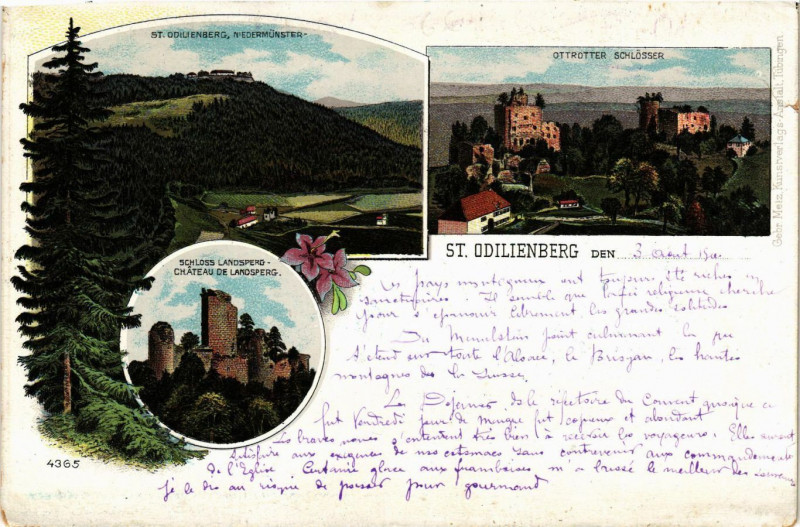 ST. ODILIENBERG, NIEDERMÜNSTER-
OTTROTTER SCHLÖSSER
Gebr. Metz, Kunstverlags-Anstalt, Tübingen
ST. ODILIENBERG DEN 3 août
SCHLOSS LANDSPERG-
CHÂTEAU DE LANDSPERG.
Les pays montagneux ont toujours été riches en
sanctuaires. Il semble que la foi religieuse cherche
pour s'épanouir librement les grandes solitudes
Du Menelstein point culminant la vue
s'étend sur toute l'Alsace, le Brisgau, les hautes
montagnes de la Suisse.
Le Déjeuner ds le réfectoire du Couvent quoique ce
fut Vendredi jour de maigre fut copieux et abondant
Les braves nonnes s'entendent très bien à recevoir les voyageurs. Elles savent
satisfaire aux exigences de nos estomacs sans contrevenir aux commandements
de l'Eglise Certaine glace aux framboises m'a laissé le meilleur des souvenirs
je le dis au risque de passer pour gourmand
4365